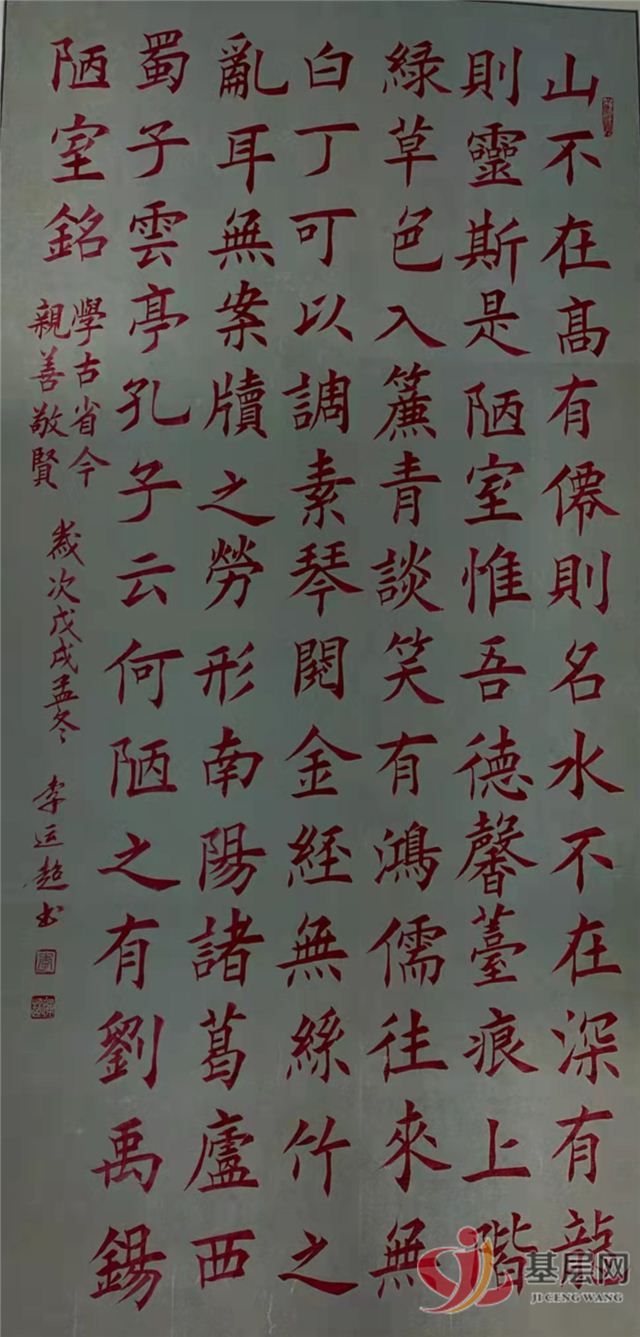 山不在高有僊則名水不在深有龍
則靈斯是陋室惟吾德馨薹痕上階
綠草色入簾青談笑有鴻儒往來無
白丁可以調素琴閱金經無絲竹之
亂耳無案牘之勞形南陽諸葛廬西
蜀子雲亭孔子云何陋之有劉禹錫
陋室銘
學古省今
親善敬賢
歲次戊戌孟冬
李运超书
基层网
JI CENG WANG